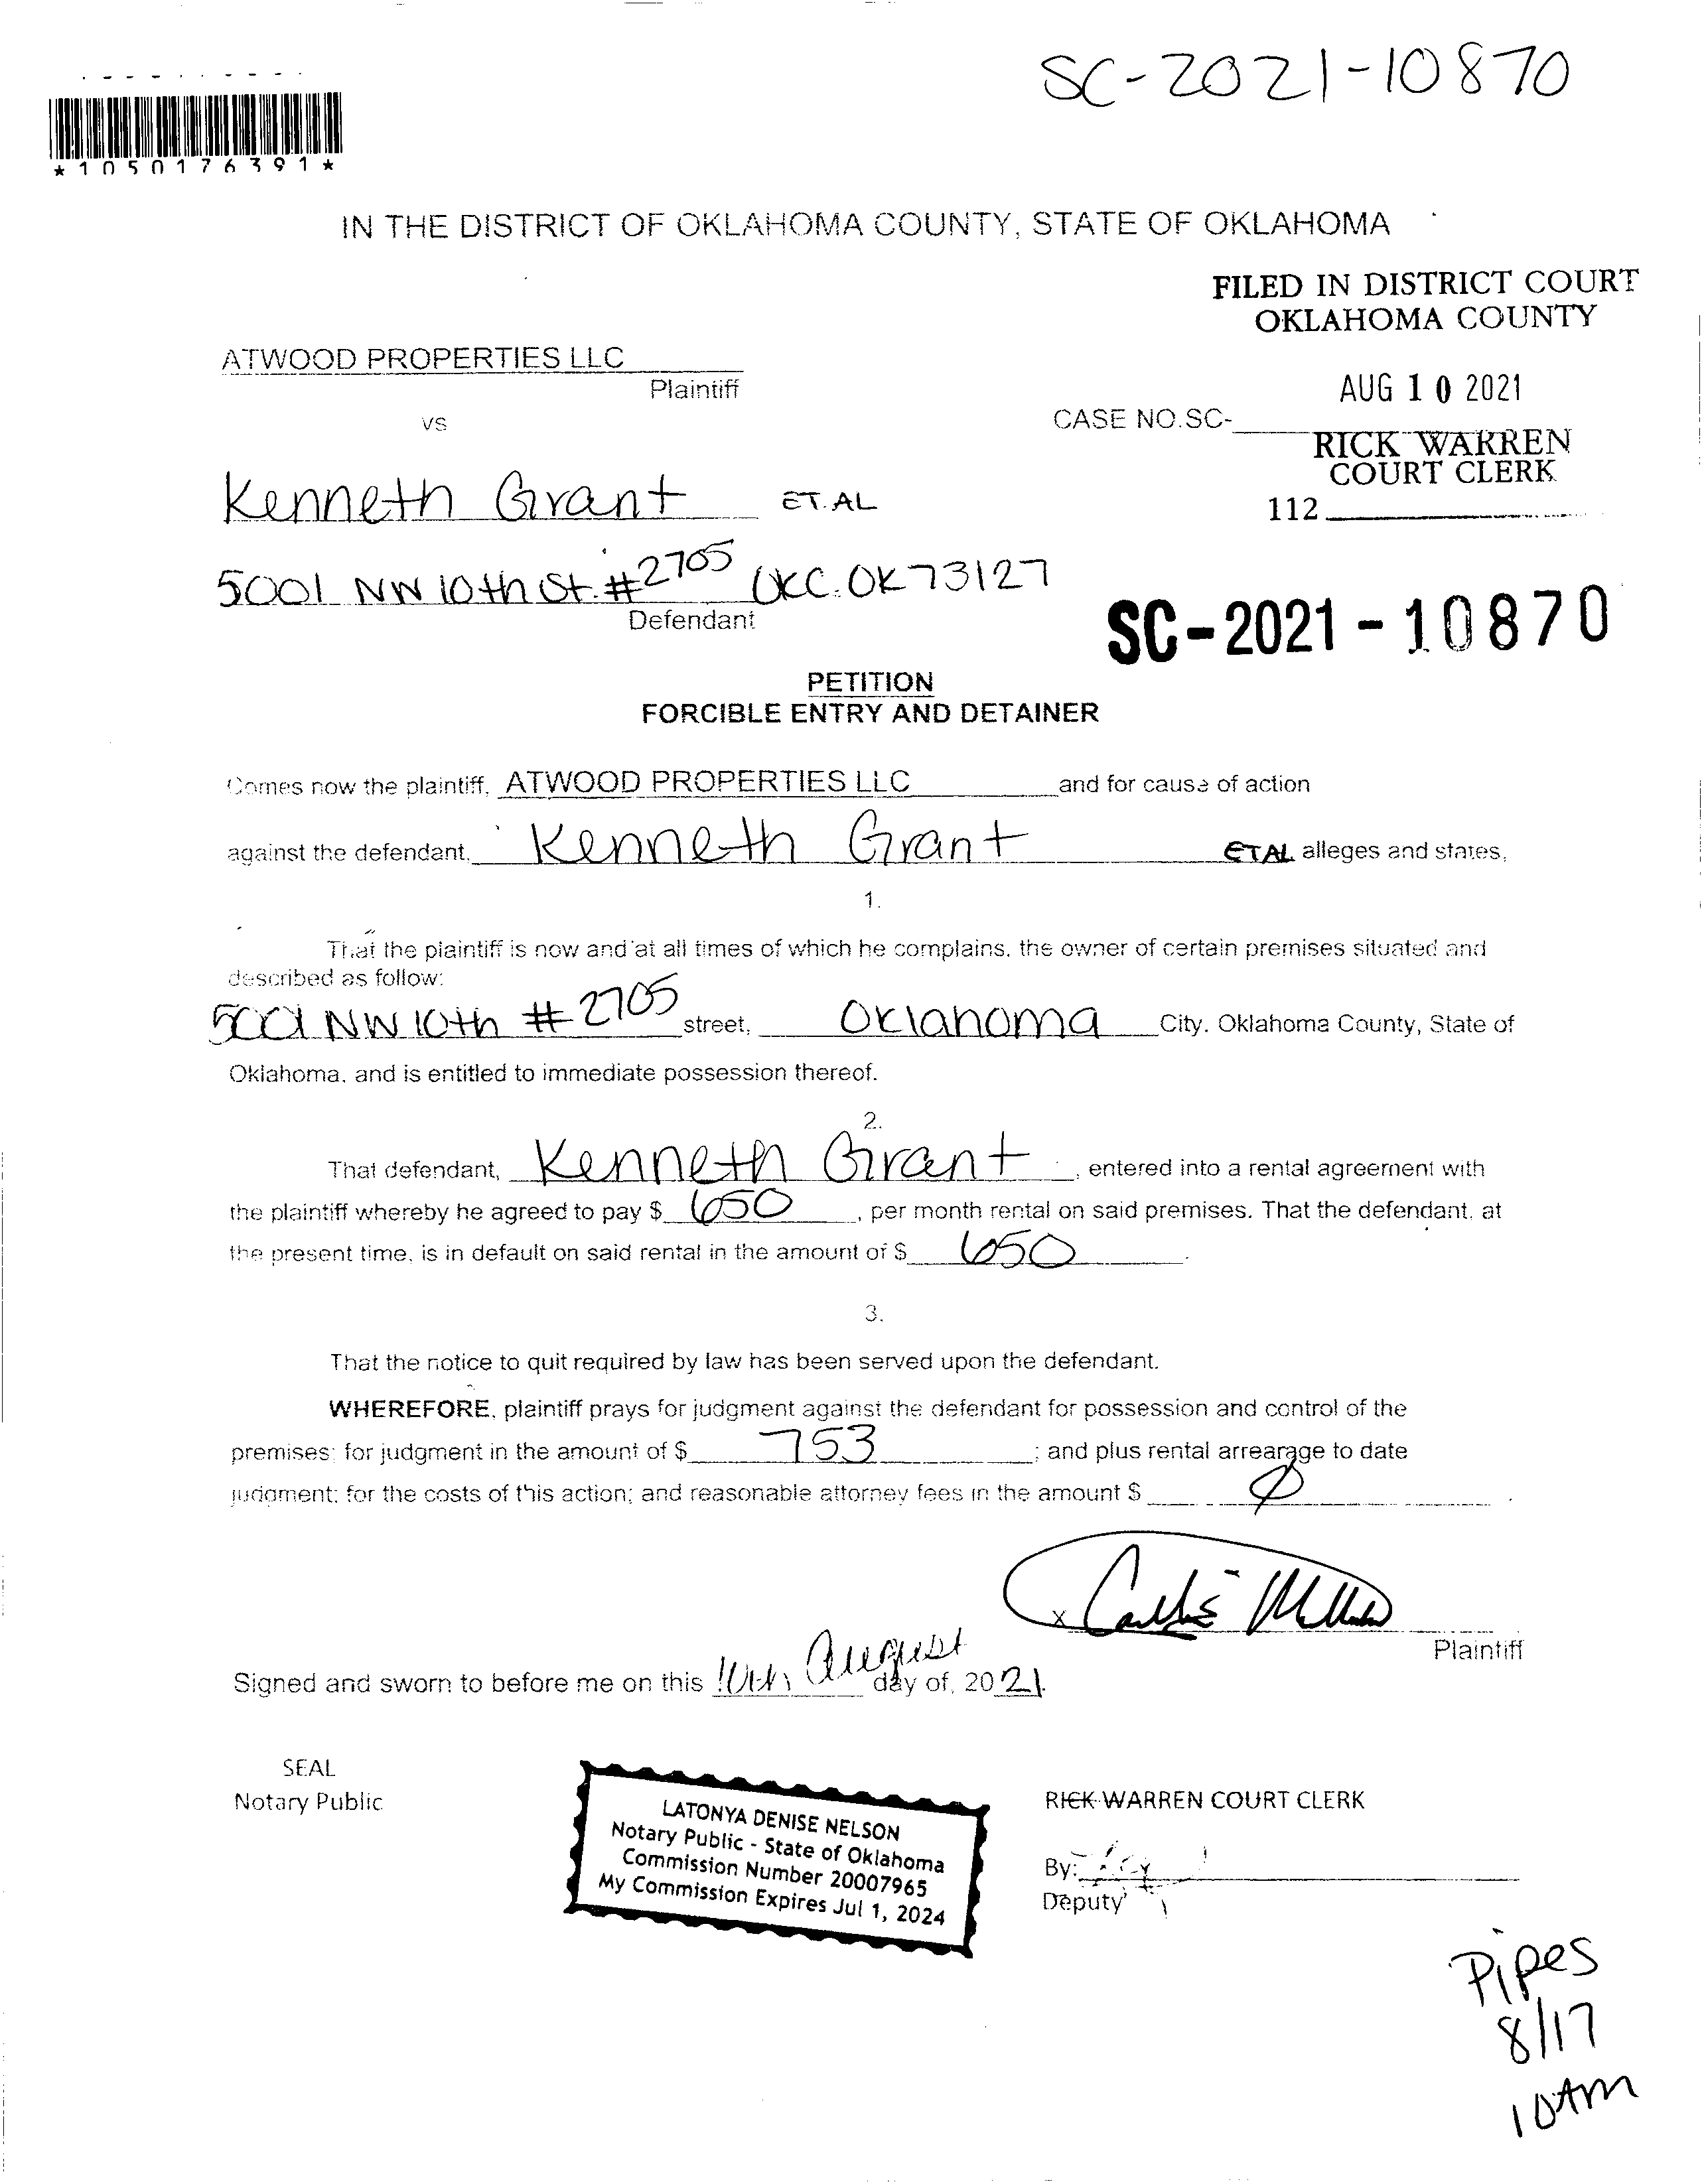 SC-2021-10870
*1050176391*
IN THE DISTRICT OF OKLAHOMA COUNTY, STATE OF OKLAHOMA
FILED IN DISTRICT COURT
OKLAHOMA COUNTY
ATWOOD PROPERTIES LLC
Plaintiff
AUG 10 2021
vs
CASE NO.SC-
RICK WARREN
COURT CLERK
Kenneth Grant ET.AL
112
5001 NW 10th St. #2705 OKC. OK 73127
Defendant
SC-2021-10870
PETITION
FORCIBLE ENTRY AND DETAINER
Comes now the plaintiff, ATWOOD PROPERTIES LLC and for cause of action
against the defendant, Kenneth Grant ETAL alleges and states,
1.
That the plaintiff is now and at all times of which he complains, the owner of certain premises situated and
described as follow:
5001 NW 10th #2705 street, Oklahoma City. Oklahoma County, State of
Oklahoma, and is entitled to immediate possession thereof.
2.
That defendant, Kenneth Grant, entered into a rental agreement with
the plaintiff whereby he agreed to pay $ 650, per month rental on said premises. That the defendant, at
the present time, is in default on said rental in the amount of $ 650.
3.
That the notice to quit required by law has been served upon the defendant.
WHEREFORE, plaintiff prays for judgment against the defendant for possession and control of the
premises; for judgment in the amount of $ 753; and plus rental arrearage to date
judgment; for the costs of this action; and reasonable attorney fees in the amount $ Ø.
x
Plaintiff
Signed and sworn to before me on this 10th August day of, 2021.
SEAL
Notary Public
LATONYA DENISE NELSON
Notary Public - State of Oklahoma
Commission Number 20007965
My Commission Expires Jul 1, 2024
RICK WARREN COURT CLERK
By:
Deputy
Pipes
8/17
10Am